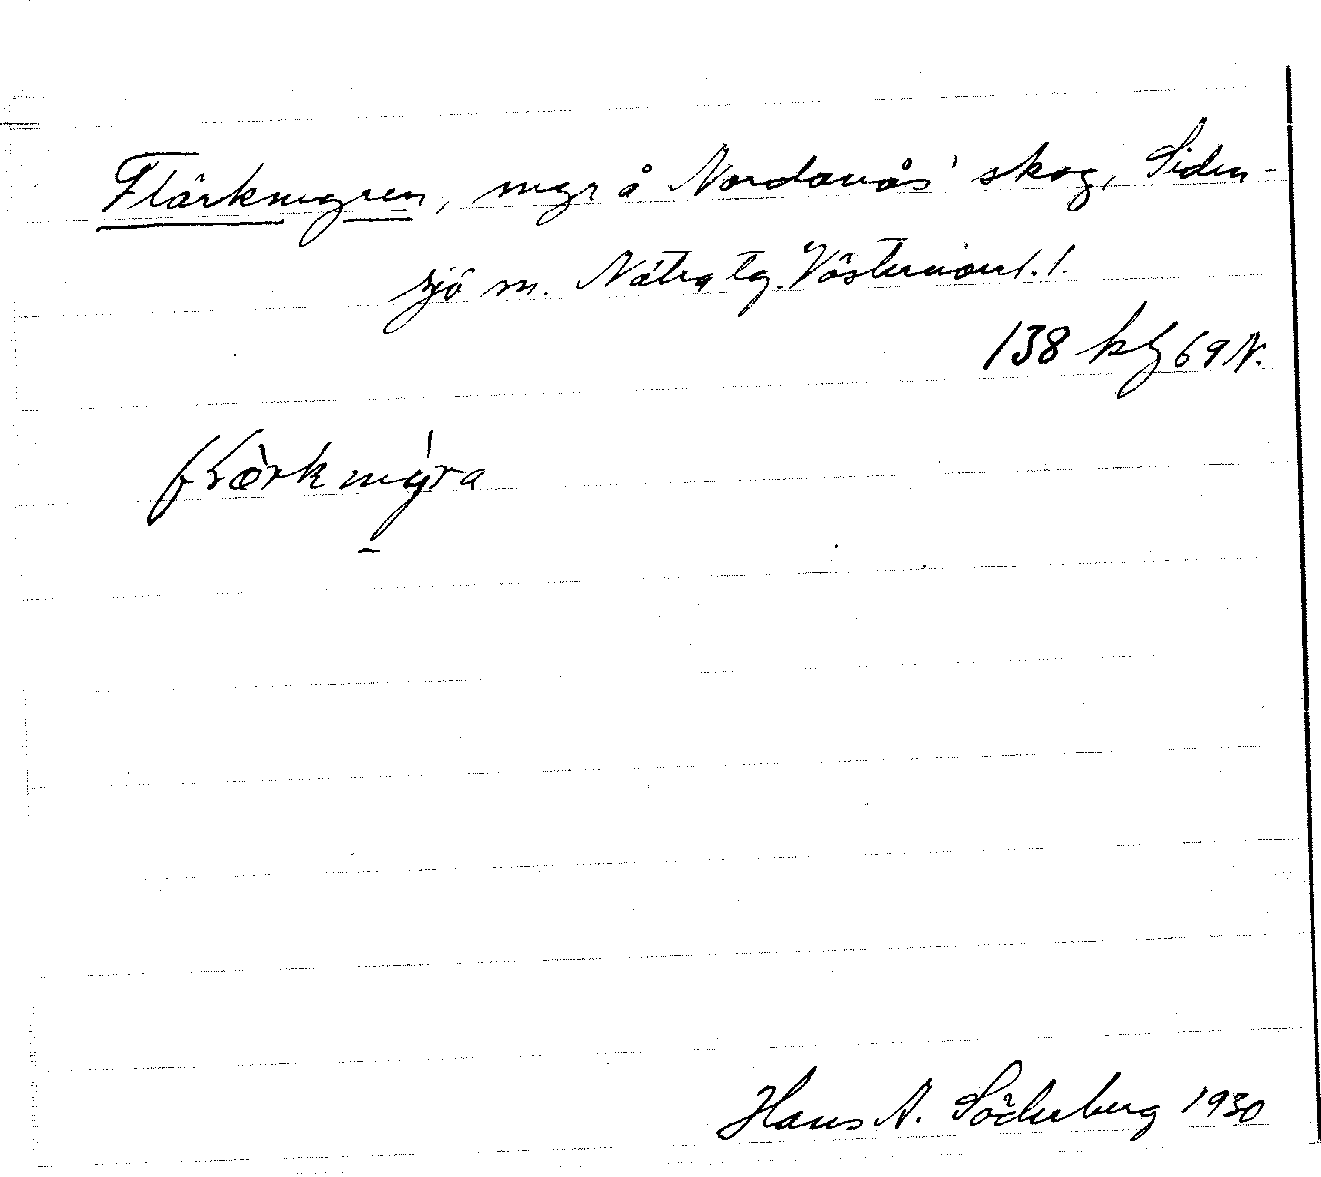 Flärkmyren, myr å Nordanås' skog, Siden-
sjö sn. Nätra tg. Västernorr l. l.
138 kf 69 N.
flærkmýra
Hans A. Söderberg 1930